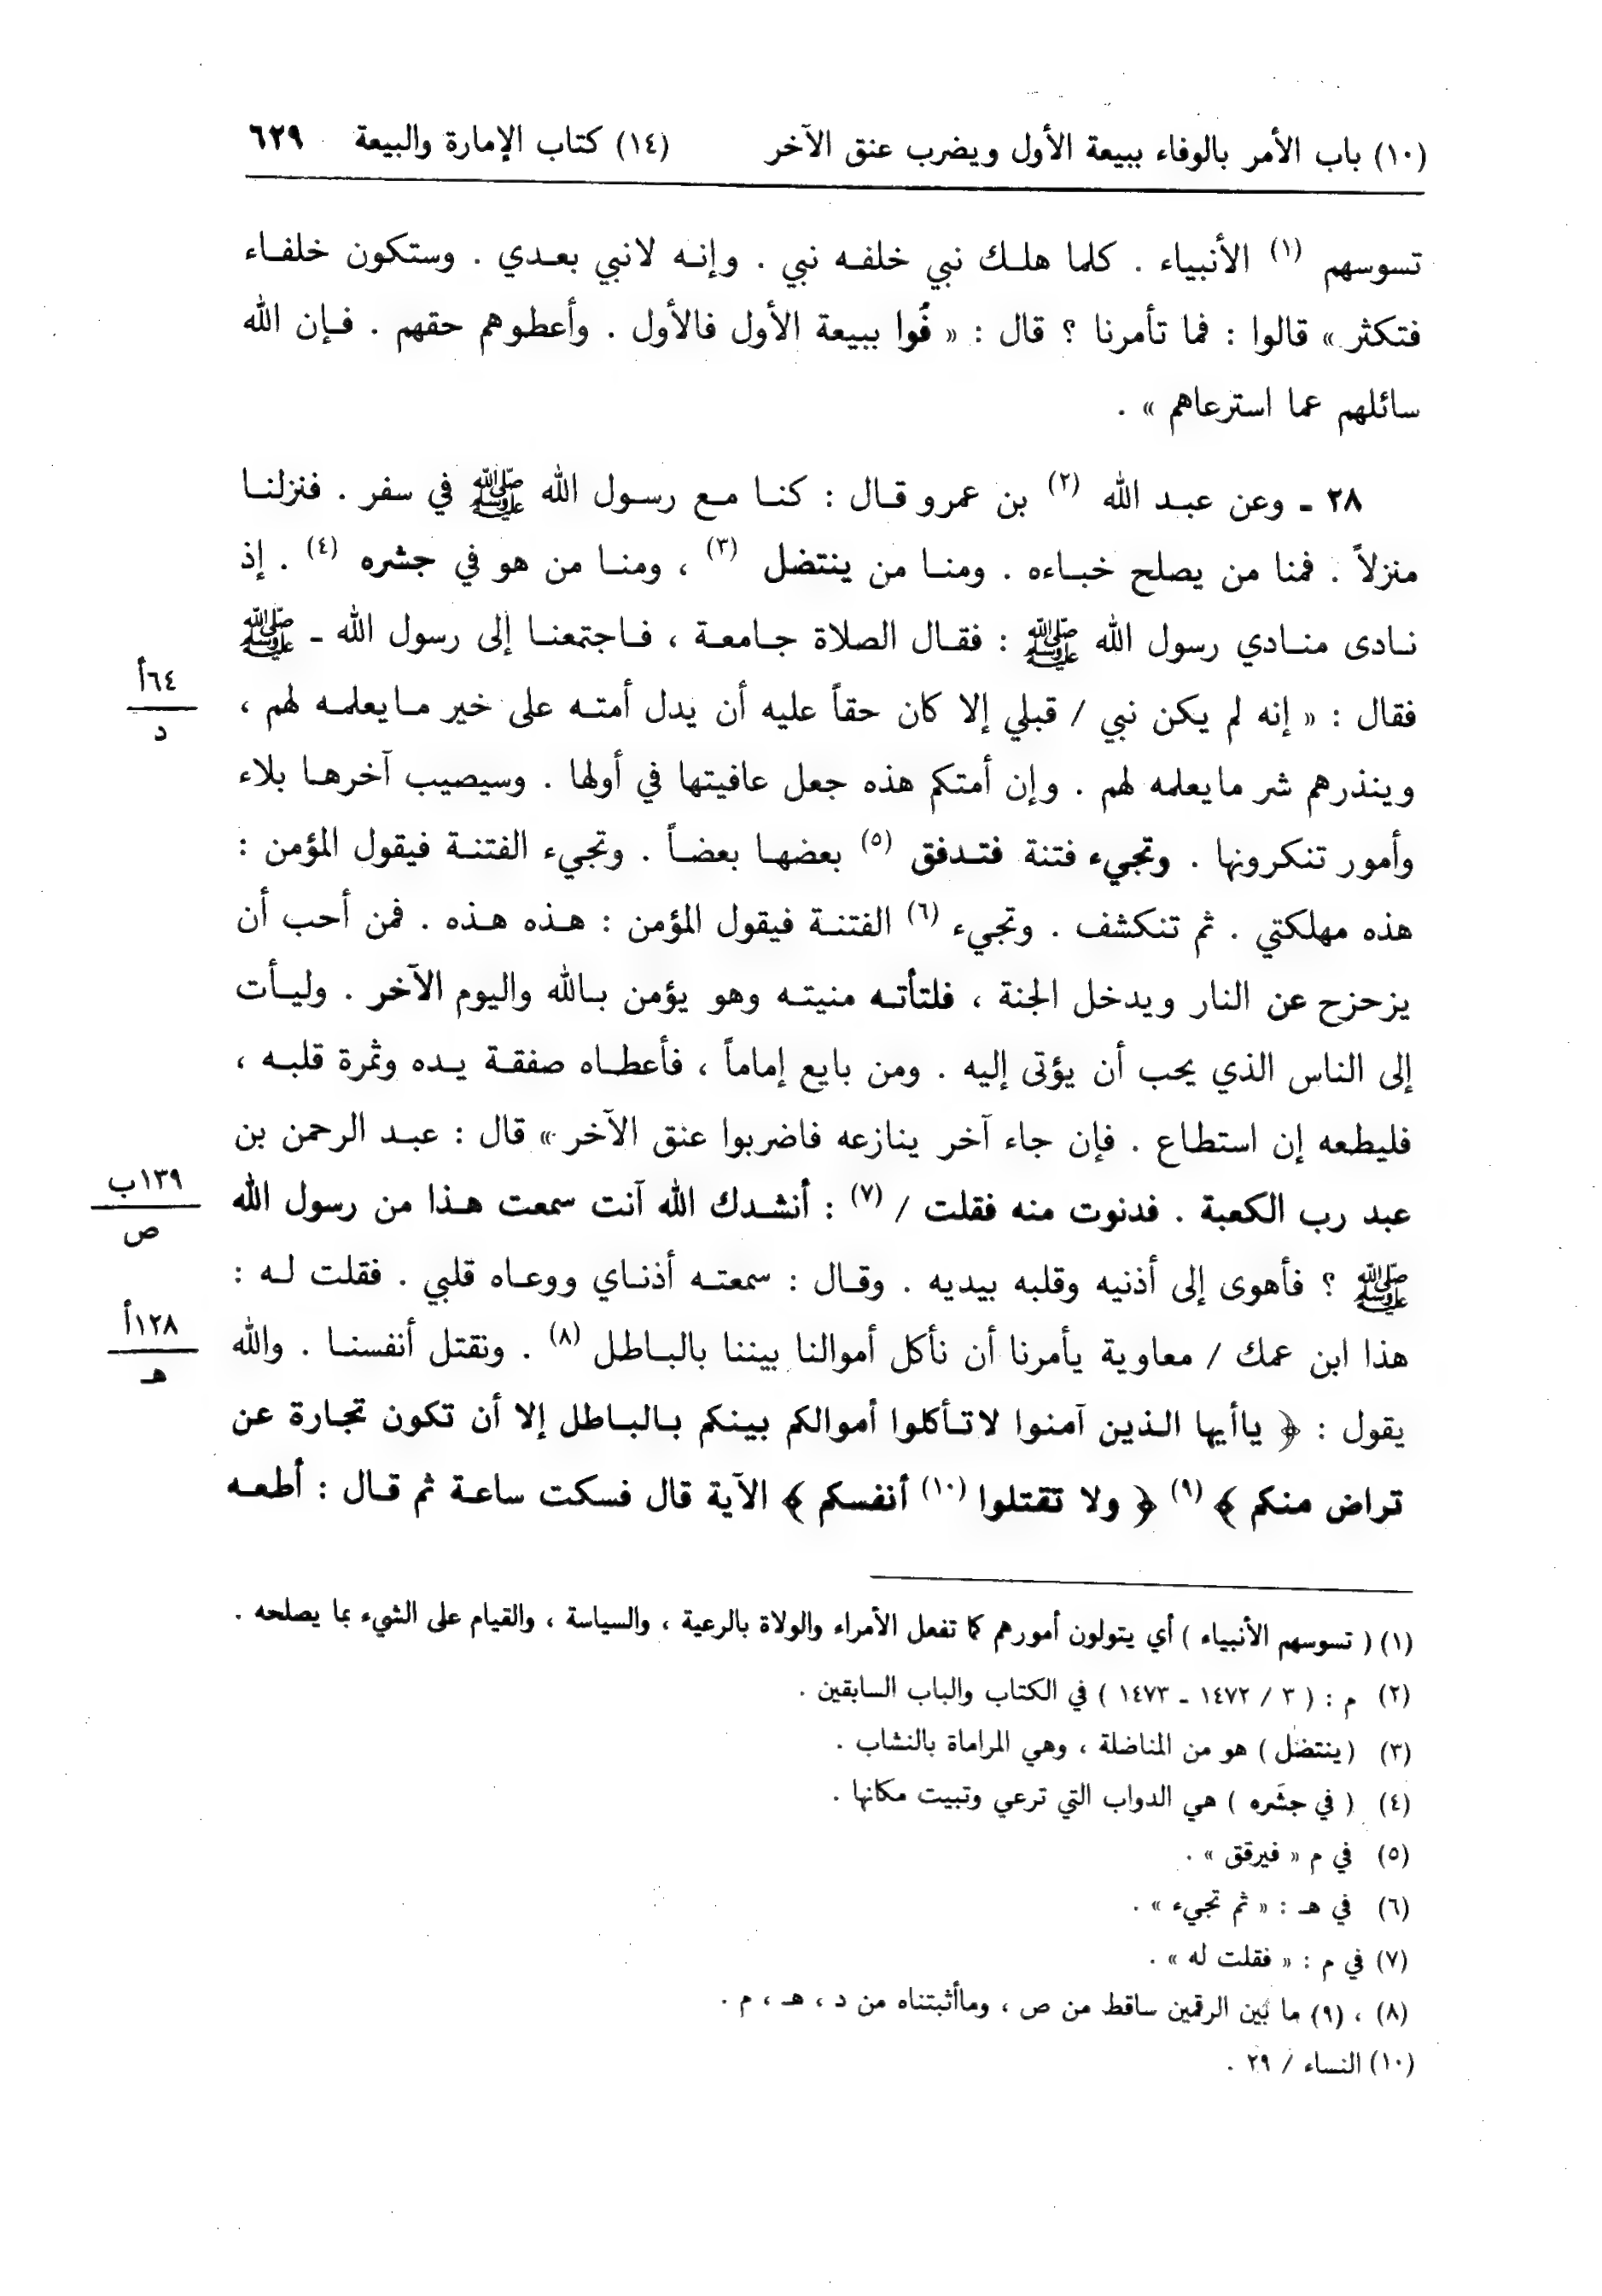 (١٠) باب الأمر بالوفاء ببيعة الأول ويضرب عنق الآخر (١٤) كتاب الإمارة والبيعة ٦٢٩
تسوسهم (١) الأنبياء . كلما هلك نبي خلفه نبي . وإنه لانبي بعدي . وستكون خلفاء
فتكثر » قالوا : فما تأمرنا ؟ قال : « فُوا ببيعة الأول فالأول . وأعطوهم حقهم . فإن الله
سائلهم عما استرعاهم » .
٢٨ ـ وعن عبد الله (٢) بن عمرو قال : كنا مع رسول الله ﷺ في سفر . فنزلنا
منزلاً . فمنا من يصلح خباءه . ومنا من ينتضل (٣) ، ومنا من هو في جشره (٤) . إذ
نادى منادي رسول الله ﷺ : فقال الصلاة جامعة ، فاجتمعنا إلى رسول الله ـ ﷺ
٦٤أ
د
فقال : « إنه لم يكن نبي / قبلي إلا كان حقاً عليه أن يدل أمته على خير مايعلمه لهم ،
وينذرهم شر مايعلمه لهم . وإن أمتكم هذه جعل عافيتها في أولها . وسيصيب آخرها بلاء
وأمور تنكرونها . وتجيء فتنة فتدفق (٥) بعضها بعضاً . وتجيء الفتنة فيقول المؤمن :
هذه مهلكتي . ثم تنكشف . وتجيء (٦) الفتنة فيقول المؤمن : هذه هذه . فمن أحب أن
يزحزح عن النار ويدخل الجنة ، فلتأته منيته وهو يؤمن بالله واليوم الآخر . وليأت
إلى الناس الذي يحب أن يؤتى إليه . ومن بايع إماماً ، فأعطاه صفقة يده وثمرة قلبه ،
فليطعه إن استطاع . فإن جاء آخر ينازعه فاضربوا عنق الآخر » قال : عبد الرحمن بن
١٣٩ب
ص
عبد رب الكعبة . فدنوت منه فقلت / (٧) : أنشدك الله آنت سمعت هذا من رسول الله
ﷺ ؟ فأهوى إلى أذنيه وقلبه بيديه . وقال : سمعته أذناي ووعاه قلبي . فقلت له :
١٢٨أ
هـ
هذا ابن عمك / معاوية يأمرنا أن نأكل أموالنا بيننا بالباطل (٨) . ونقتل أنفسنا . والله
يقول : ﴿ ياأيها الذين آمنوا لاتأكلوا أموالكم بينكم بالباطل إلا أن تكون تجارة عن
تراض منكم ﴾ (٩) ﴿ ولا تقتلوا (١٠) أنفسكم ﴾ الآية قال فسكت ساعة ثم قال : أطعه
(١) ( تسوسهم الأنبياء ) أي يتولون أمورهم كما تفعل الأمراء والولاة بالرعية ، والسياسة ، والقيام على الشيء بما يصلحه .
(٢) م : ( ٣ / ١٤٧٢ ـ ١٤٧٣ ) في الكتاب والباب السابقين .
(٣) ( ينتضل ) هو من المناضلة ، وهي المراماة بالنشاب .
(٤) ( في جشَره ) هي الدواب التي ترعي وتبيت مكانها .
(٥) في م « فيرقق » .
(٦) في هـ : « ثم تجيء » .
(٧) في م : « فقلت له » .
(٨) ، (٩) ما بين الرقمين ساقط من ص ، وماأثبتناه من د ، هـ ، م .
(١٠) النساء / ٢٩ .